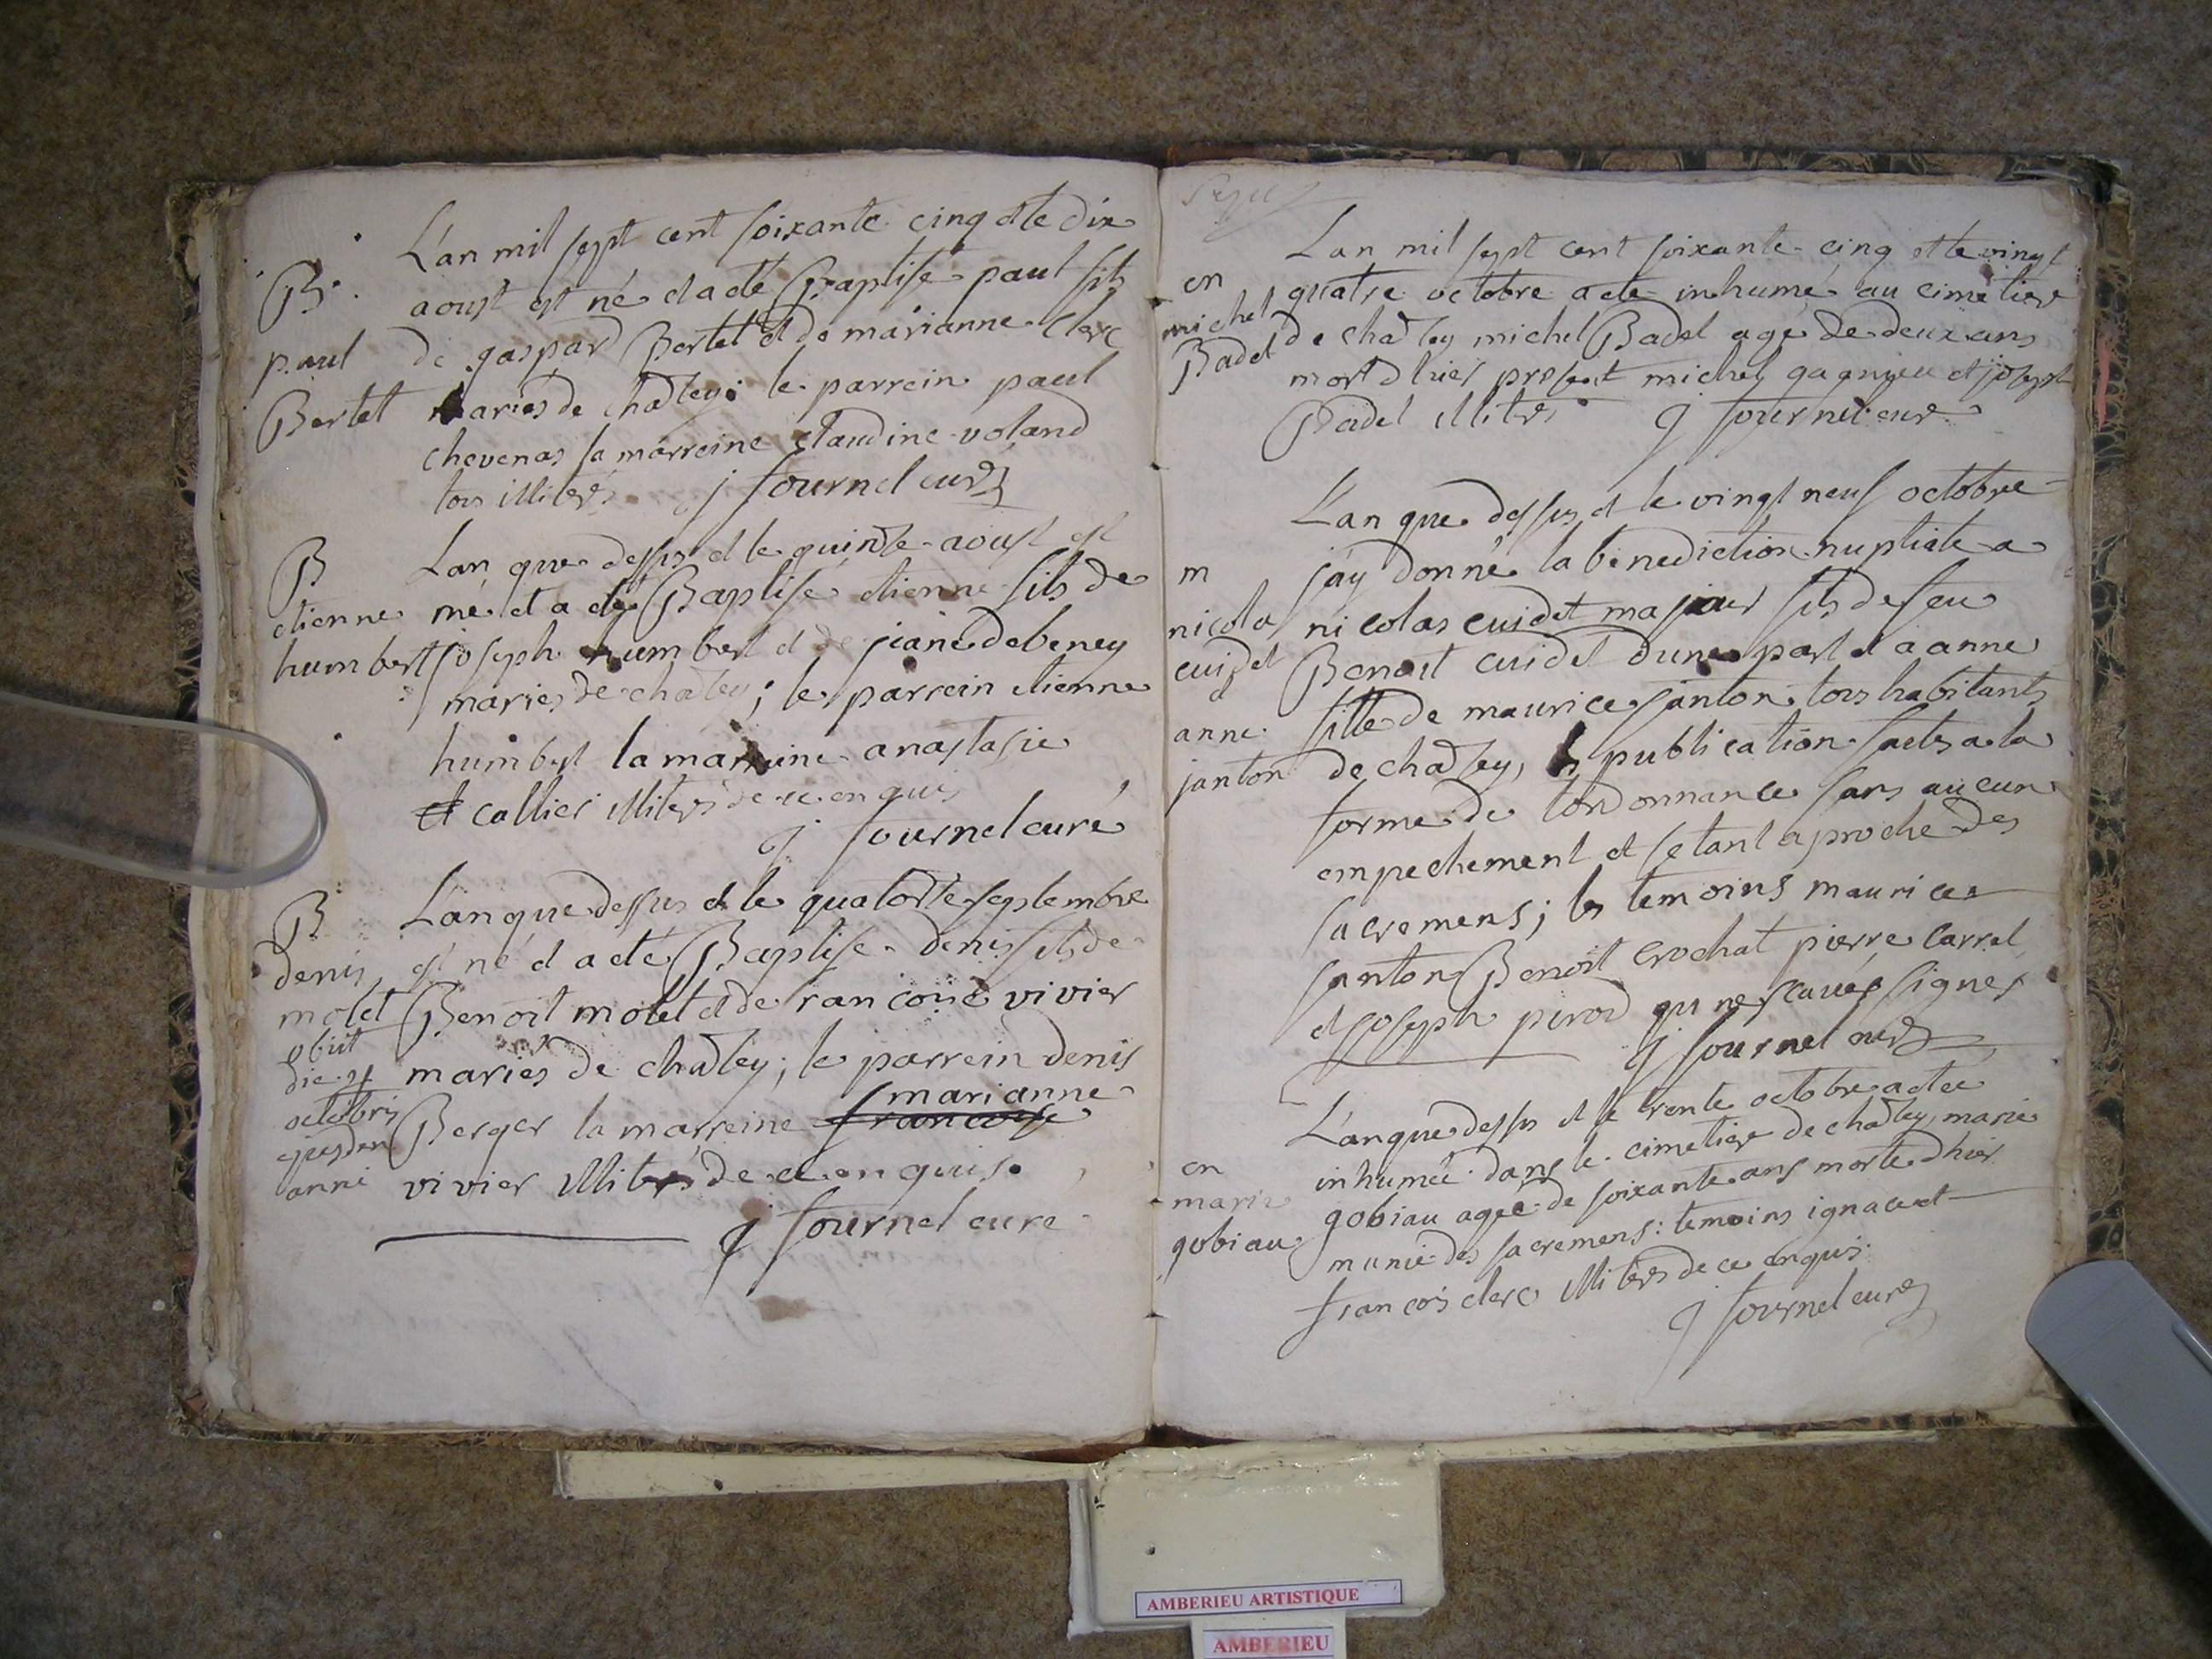 L'an mil sept cent soixante cinq et le dix
B. aoust est né et a eté Baptisé paul fils
paul de gaspard Bertet et de marianne Clerc
Bertet mariés de chaley; le parrein paul
chevenas la marreine claudine voland
tous illiteré j fournel curé
L'an que dessus et le quinze aoust est
B
etienne né et a eté Baptisé etienne fils de
humbert joseph humbert et de jeane debeney
mariés de chaley; le parrein etienne
humbert la marreine anastasie
callier illiterés de ce enquis
j fournel curé
B L'an que dessus et le quatorze septembre
denis est né et a eté Baptisé denis fils de
molet Benoit molet et de francoise vivier
obiit
die 24 mariés de chaley; le parrein denis
octobris marianne
ejusdem Berger la marreine francoise
anni vivier illiterés de ce enquis.
j fournel curé
L'an mil sept cent soixante cinq et le vingt
en quatre octobre a eté inhumé au cimetiere
michel de chaley michel Badel agé de deux ans
Badel mort d'hier present michel gagnieu et joseph
Badel illiterés j fournel curé
L'an que dessus et le vingt neuf octobre
m j'ay donné la benediction nuptiale a
nicolas nicolas cuidet majeur fils de feu
cuidet Benoit cuidet d'une part et a anne
&
anne fille de maurice janton tous habitants
janton de chaley, les publication faites a la
forme de l'ordonnance sans aucun
empechement et setant aproché des
sacremens; les temoins maurice
janton Benoit crochat pierre carrel
et joseph perod qui ne scavent signer
j fournel curé
L'an que dessus et le trente octobre a eté
en inhumée dans le cimetiere de chaley marie
marie gobiau agée de soixante ans morte d'hier
gobiau munie des sacremens: temoins ignace et
francois clerc illiterés de ce enquis.
j fournel curé
AMBERIEU ARTISTIQUE
AMBERIEU